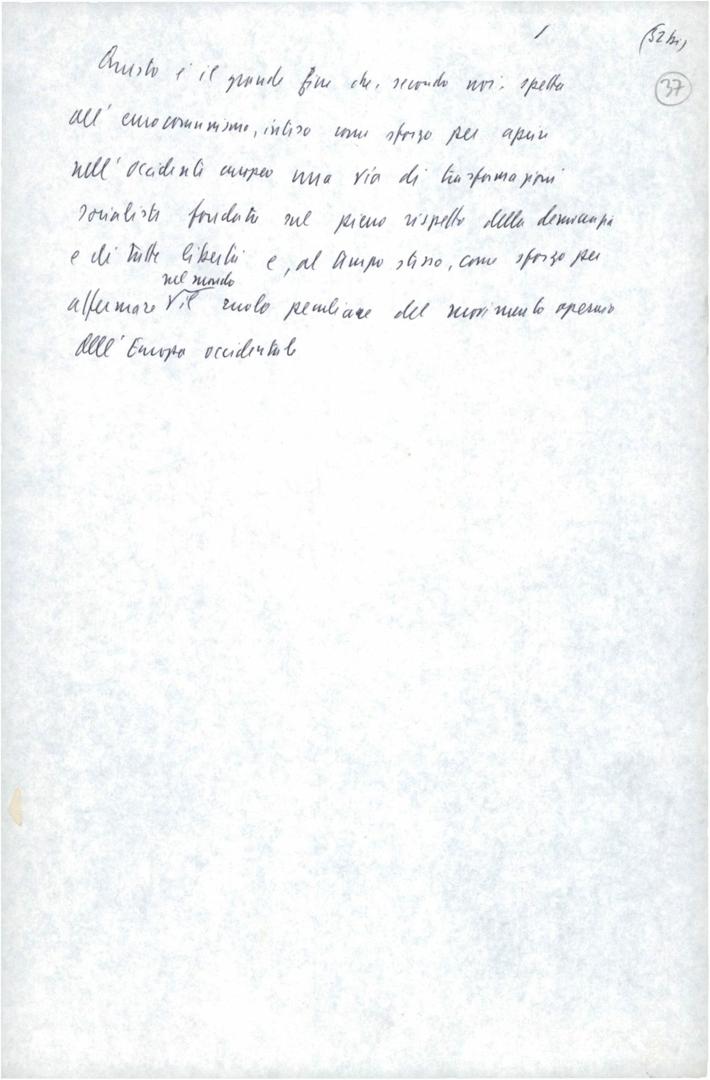 /
(52 bis)
37
Questo è il grande fine che, secondo noi, spetta
all'eurocomunismo, inteso come sforzo per aprire
nell'Occidente europeo una via di trasformazioni
socialiste fondata sul pieno rispetto della democrazia
e di tutte libertà e, al tempo stesso, come sforzo per
nel mondo
affermare il ruolo peculiare del movimento operaio
dell'Europa occidentale